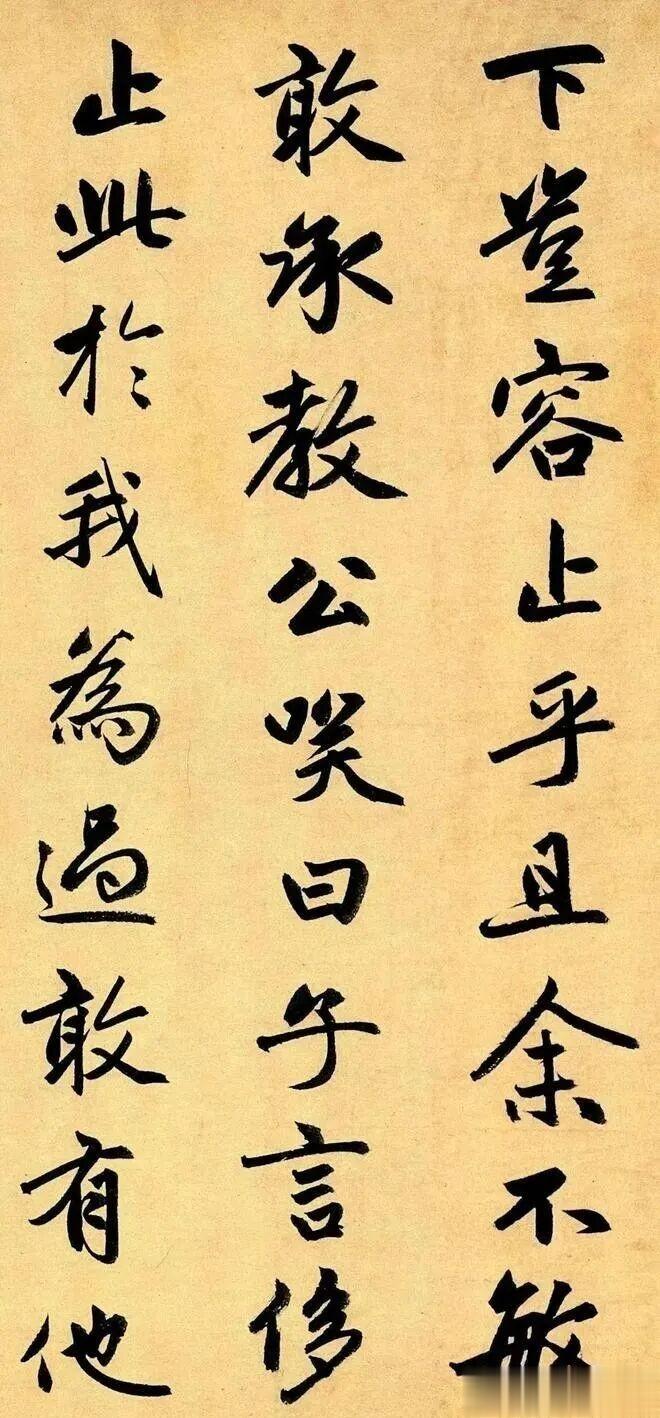 下豈容止乎且余不敏
敢承教公笑曰子言侈
止此於我為過敢有他